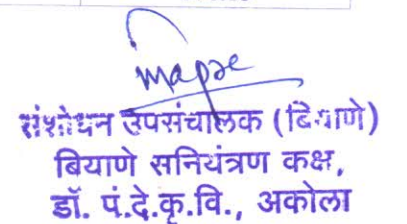 संशोधन उपसंचालक (बियाणे)
बियाणे सनियंत्रण कक्ष,
डॉ. पं.दे.कृ.वि., अकोला